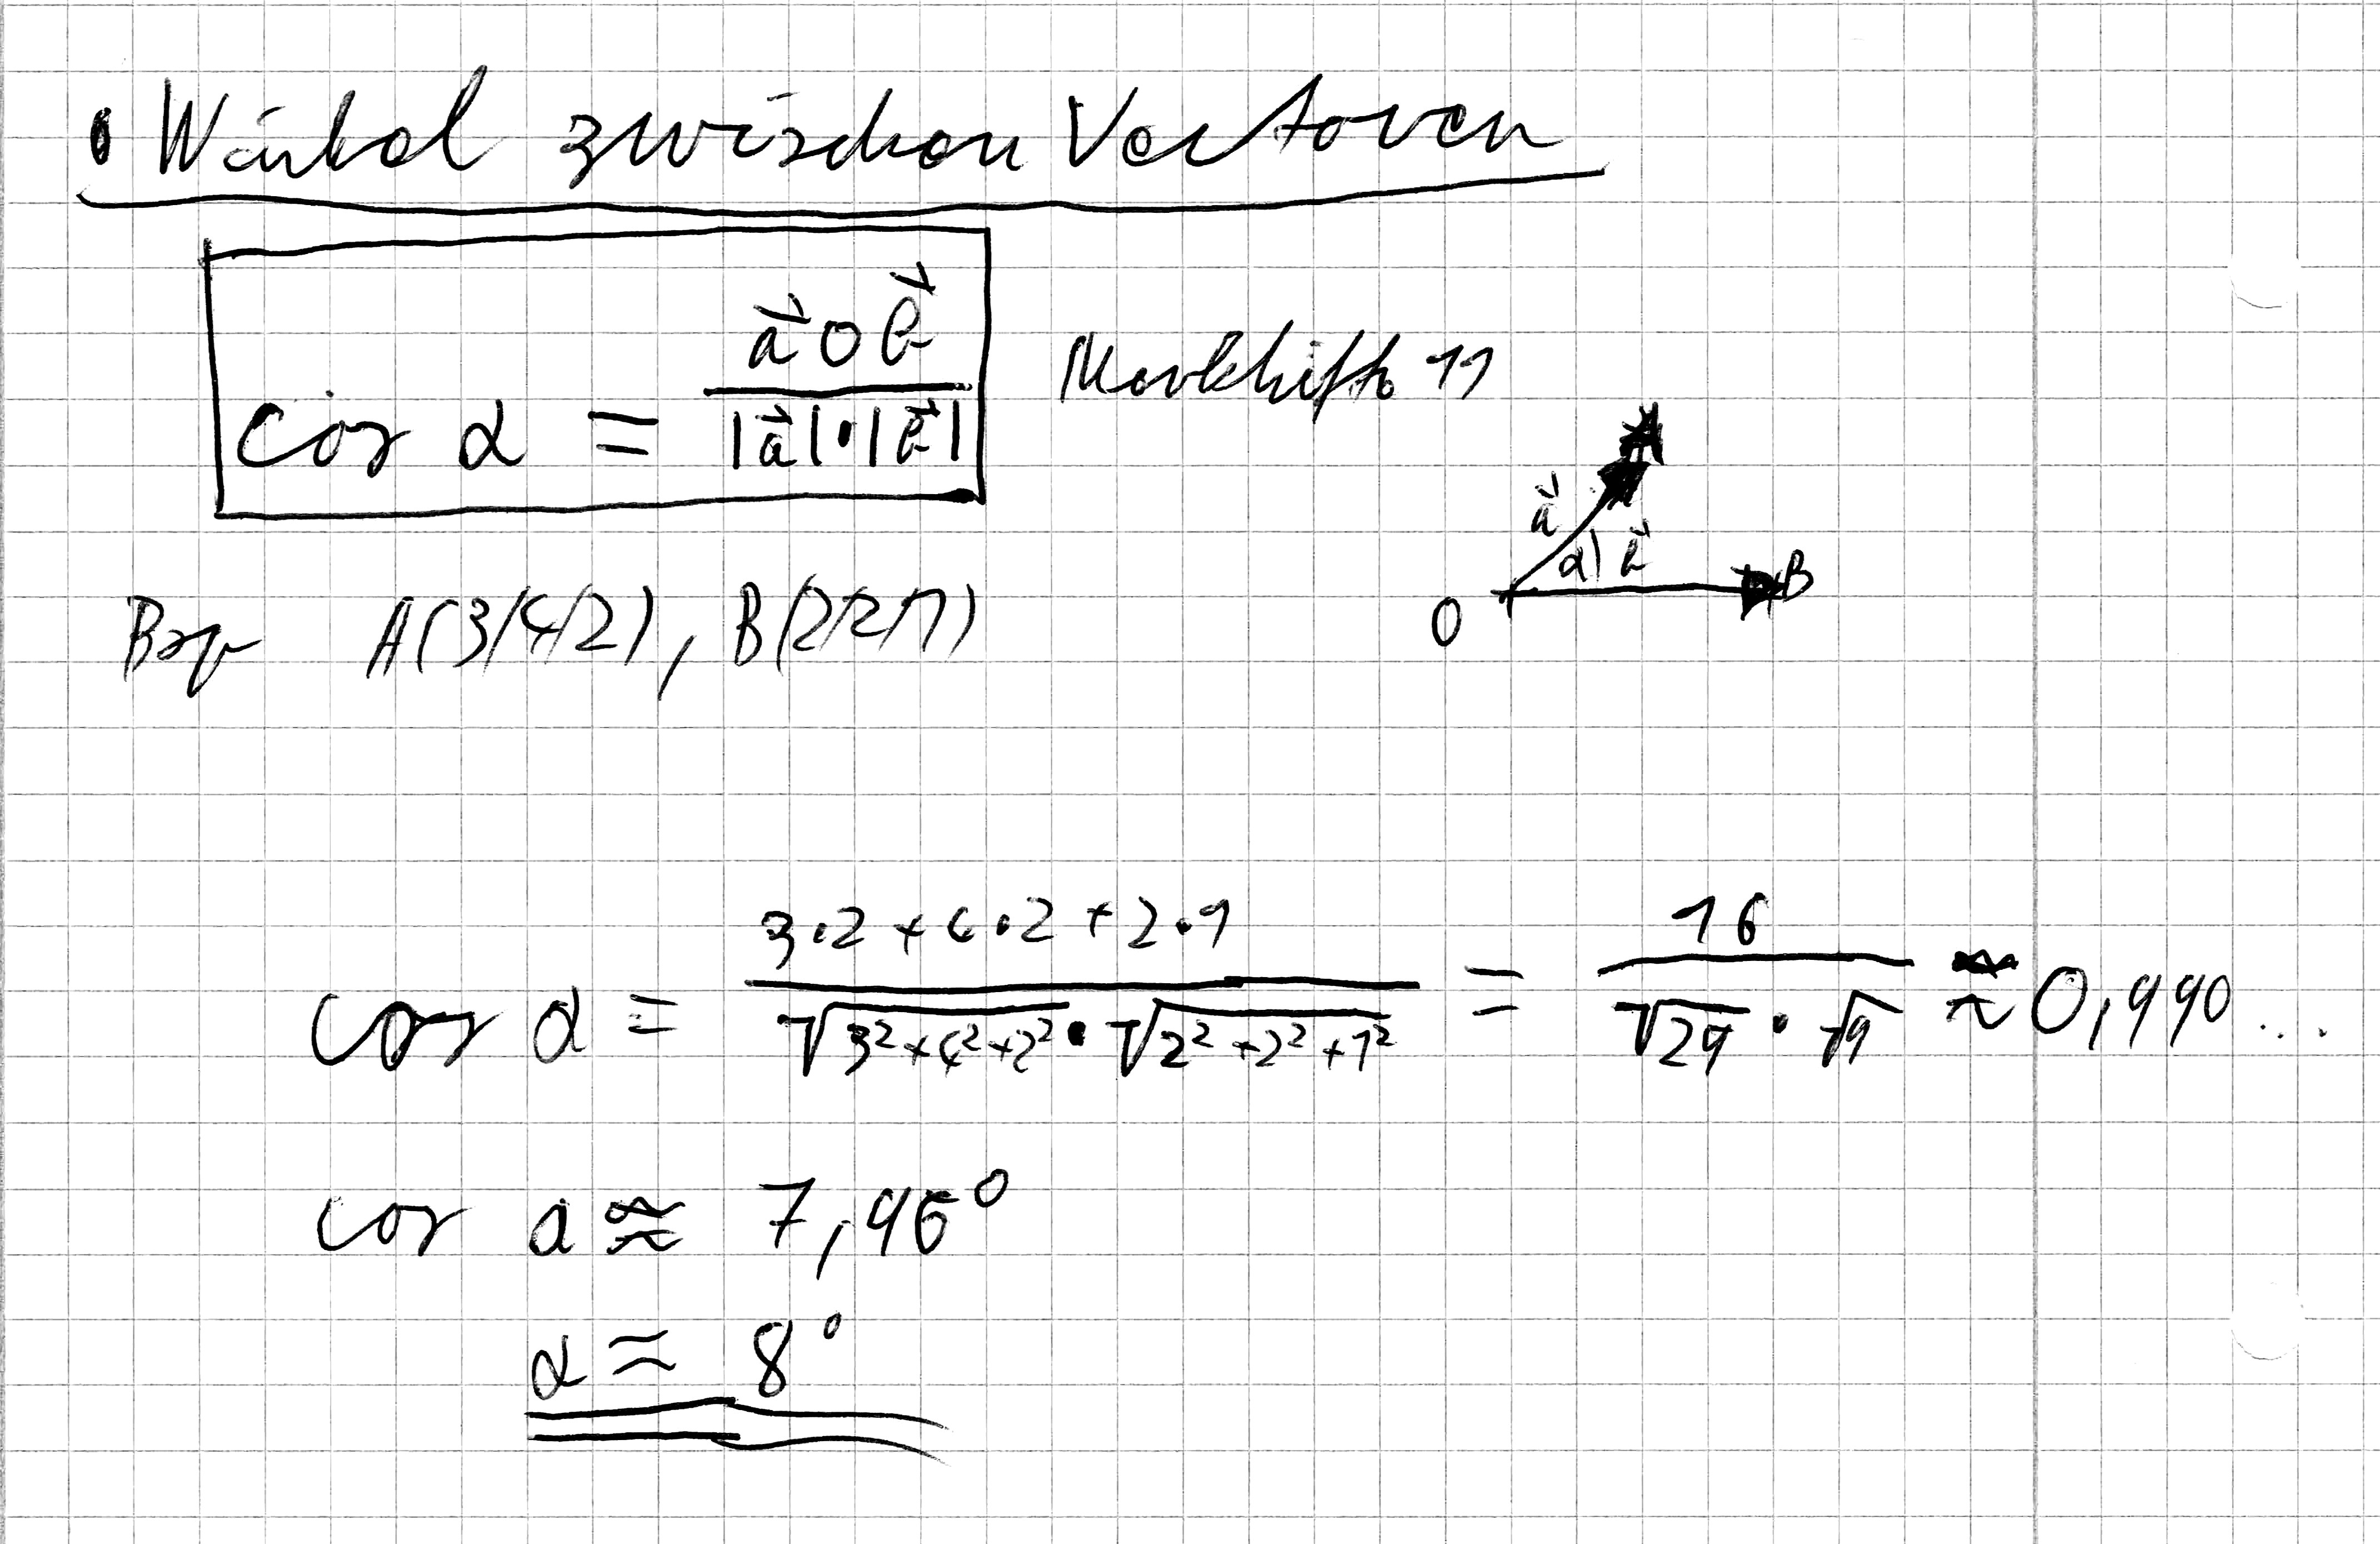 • Winkel zwischen Vectoren
cos α = (a⃗ ∘ b⃗) / (|a⃗| · |b⃗|)
Merkhilfe 11
A
a⃗
α b⃗
O B
Bsp A(3/4/2), B(2/2/1)
cos α = (3·2 + 4·2 + 2·1) / (√(3²+4²+2²) · √(2²+2²+1²)) = 16 / (√29 · √9) ≈ 0,990...
cos α ≈ 7,96°
α ≈ 8°